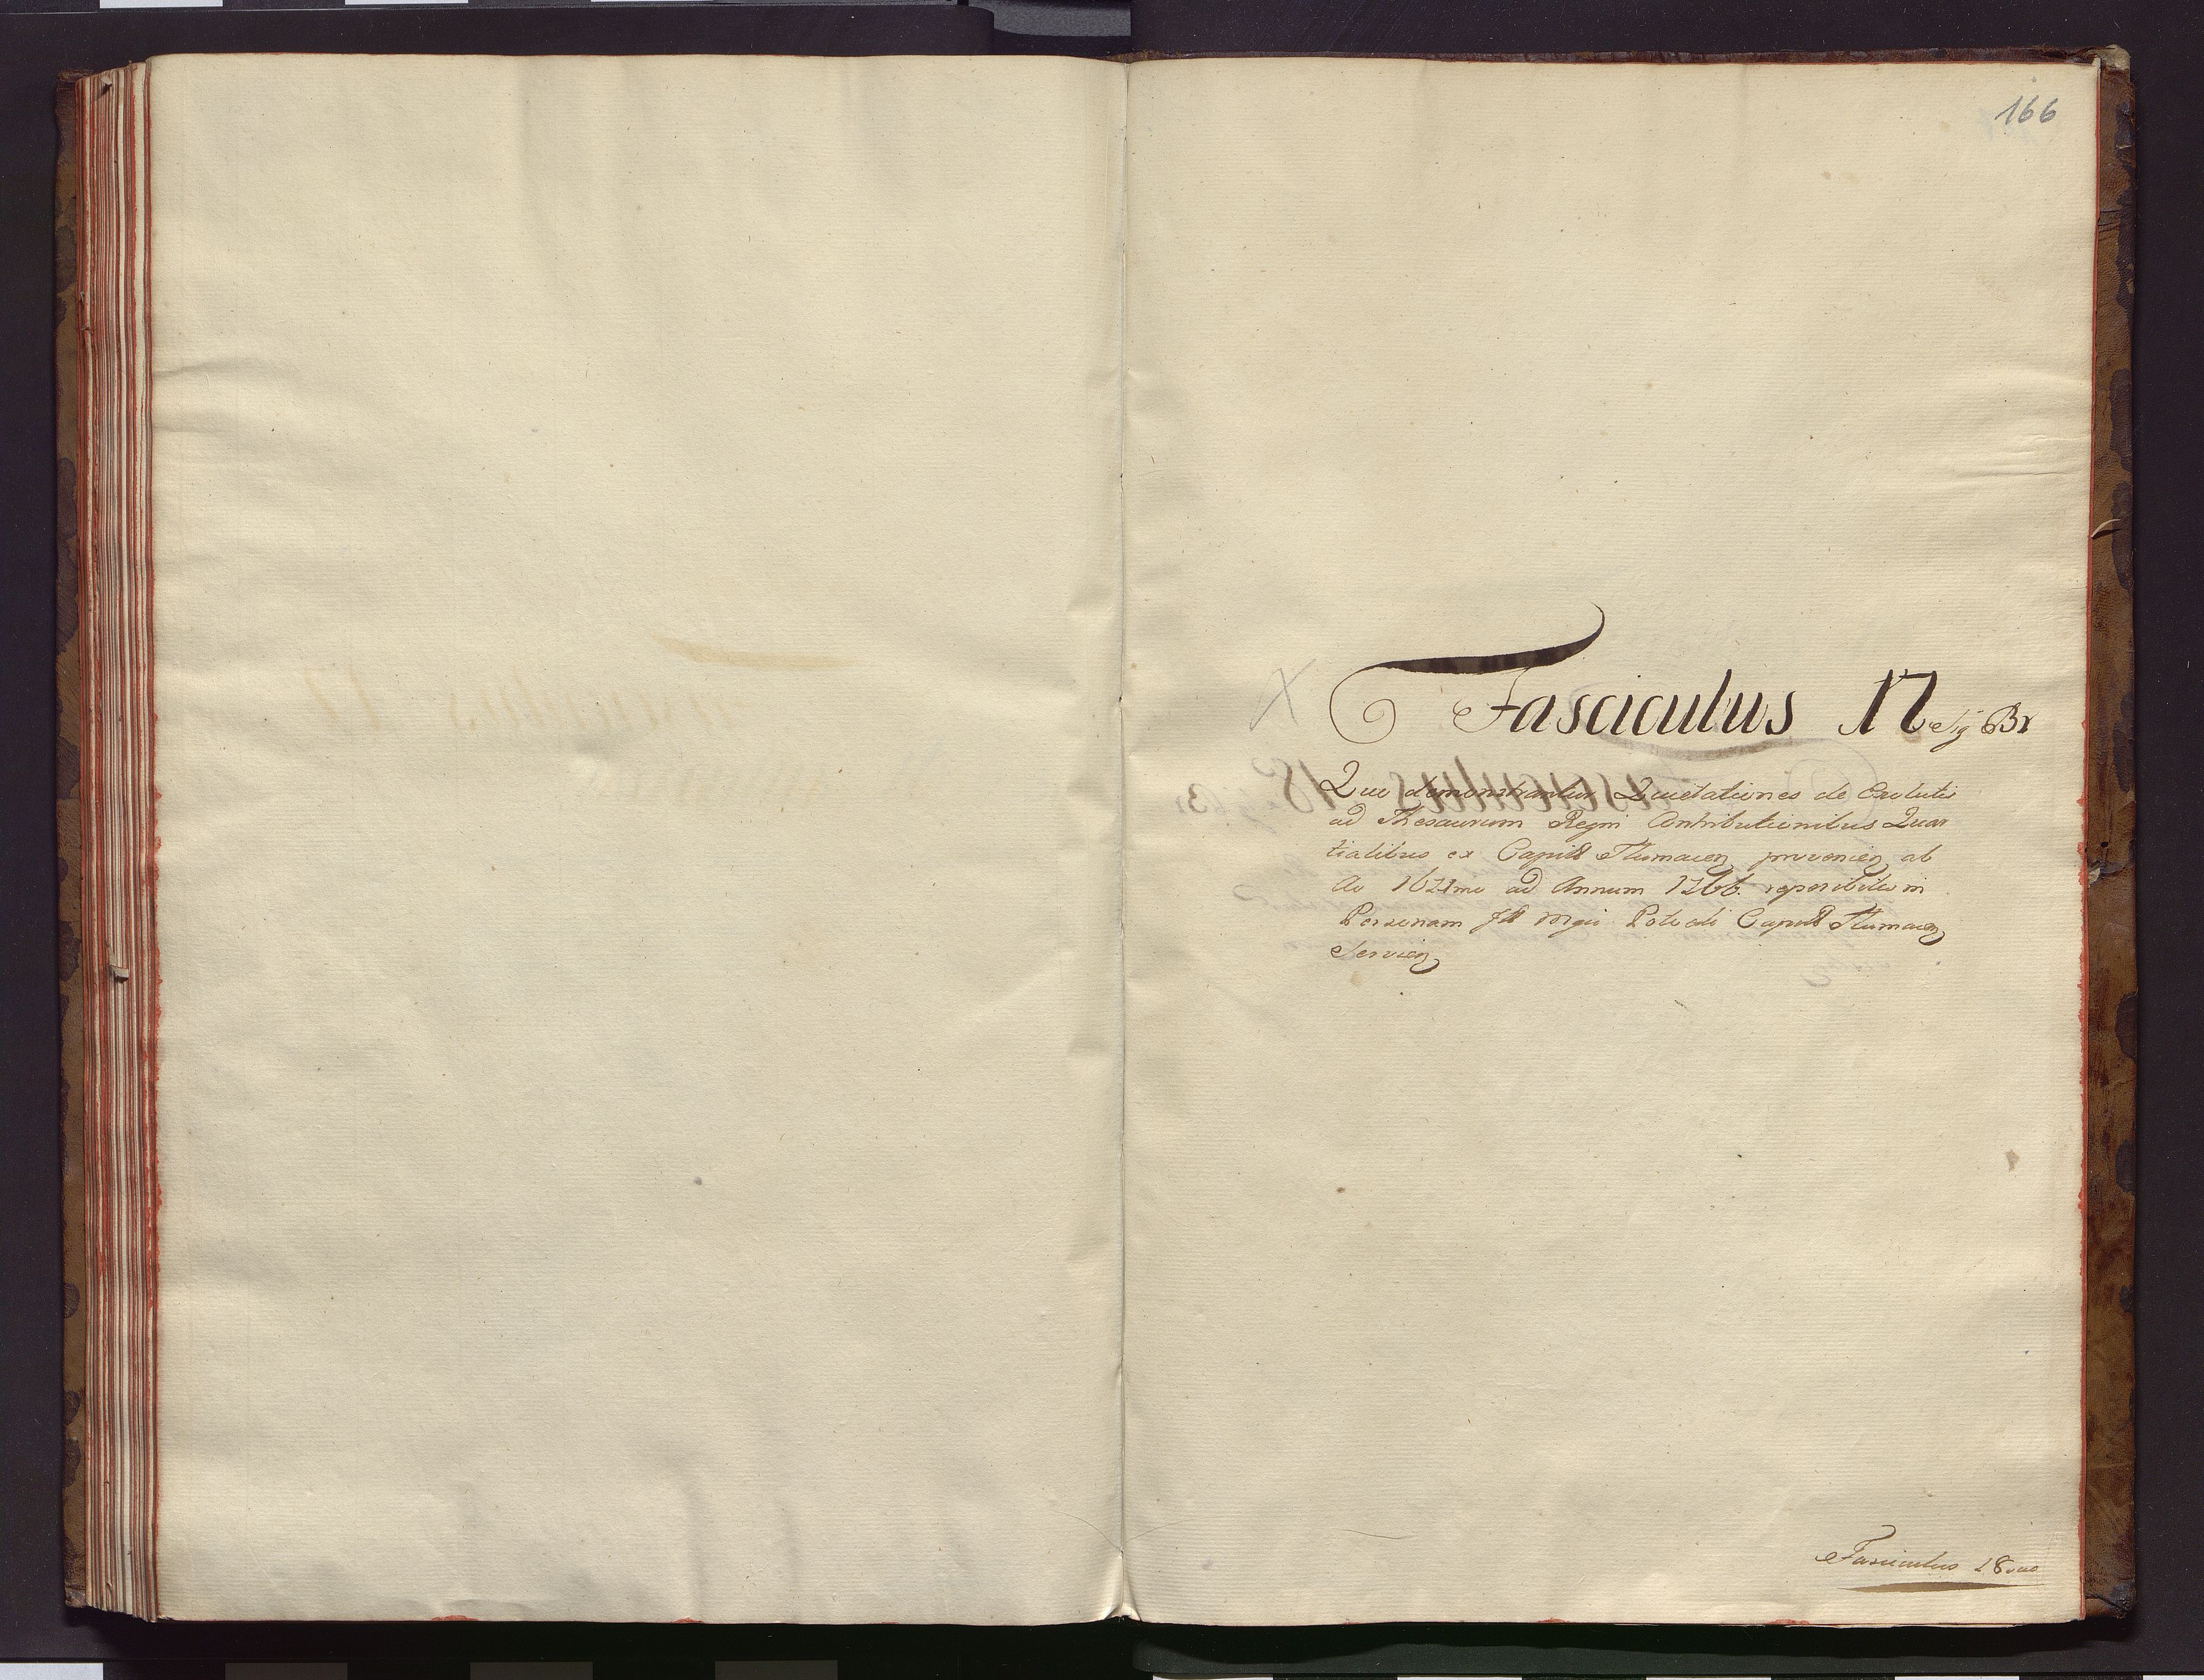 166
X Fasciculus 17 Sig Br
Quo demonstrantur Quietationes de Exolutis
ad Thesaurum Regni Contributionibus Quar
tialibus ex Capitt Tlumacen provenien ab
Ao 1621mo ad Annum 1766. reperibiles in
Personam Potocki Capitt Tlumacen
Servien
Fasciculus 18vus